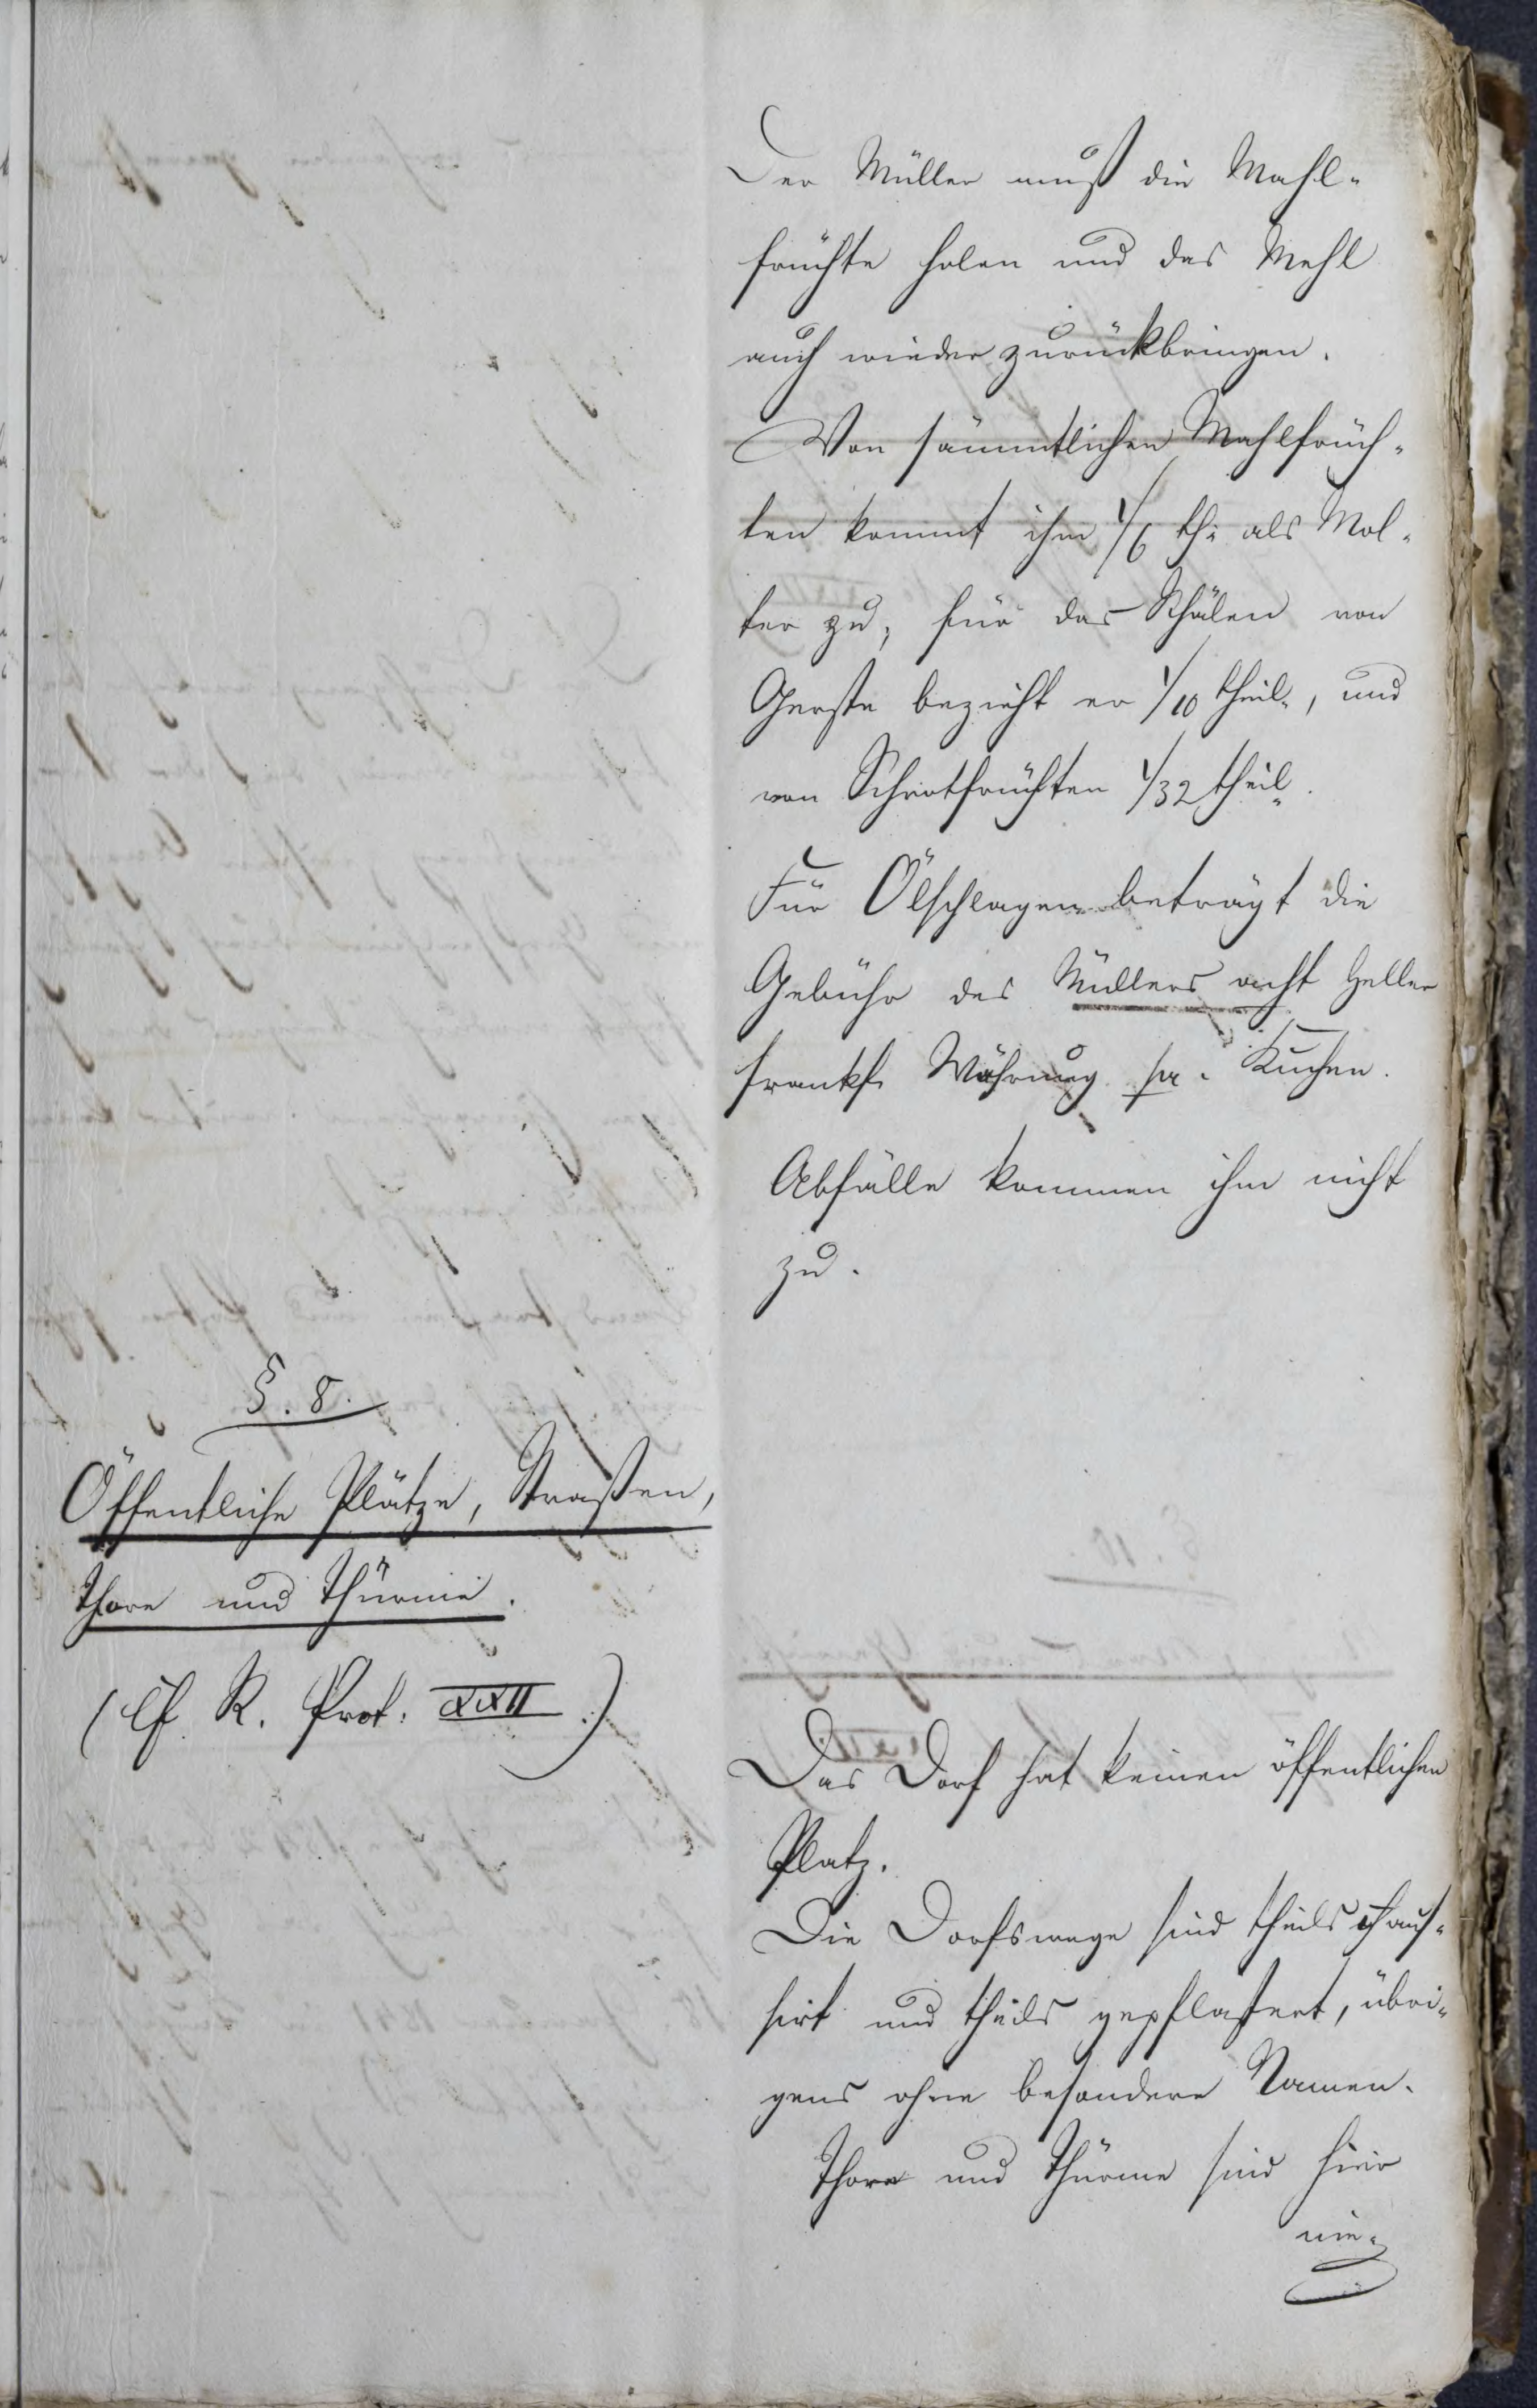 Der Müller muß die Mahl-
früchte holen und das Mehl
auch wieder zurückbringen.
Von sämmtlichen Mahlfrüch-
ten kommt ihm 1/6 th: als Mol-
ter zu; für das Schälen von
Gerste bezieht er 1/10 theil, und
von Schrotfrüchten 1/32 theil.
Für Ölschlagen beträgt die
Gebühr des Müllers acht Heller
frankf. Währung pr. Kuchen.
Abfälle kommen ihm nicht
zu.
§. 8.
Öffentliche Plätze, Straßen,
Thore und Thürme.
(Cf. R. Prot. XXII.)
Das Dorf hat keinen öffentlichen
Platz.
Die Dorfswege sind theils chaus-
sirt und theils gepflastert, übri-
gens ohne besondere Namen.
Thore und Thürme sind hier
nie-